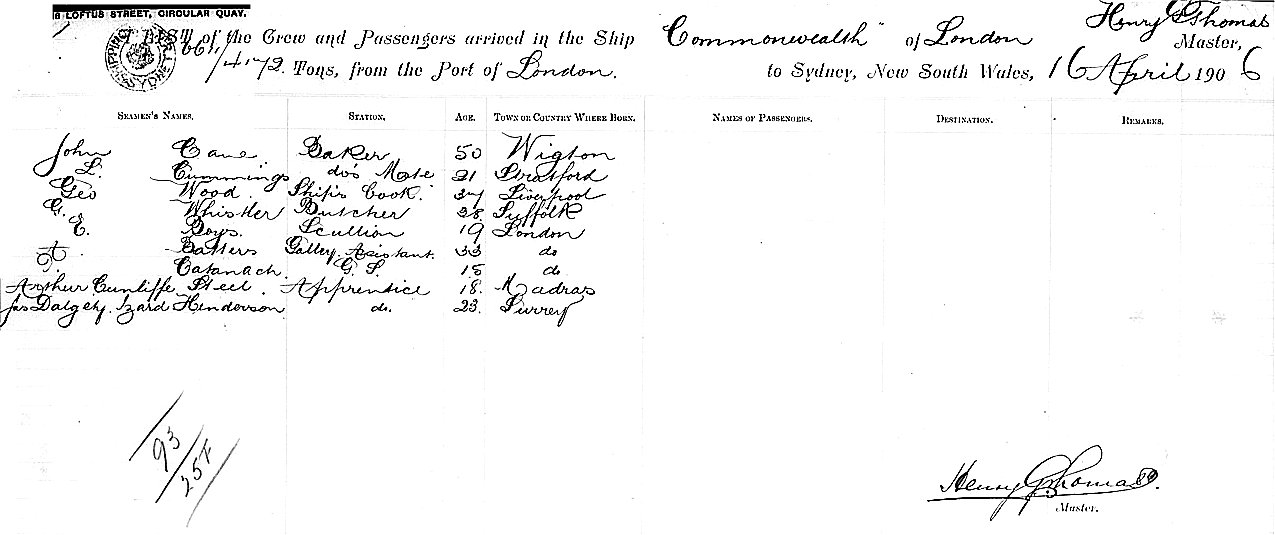 8 LOFTUS STREET, CIRCULAR QUAY.
LIST of the Crew and Passengers arrived in the Ship "Commonwealth" of London Henry G Thomas Master,
Tons, from the Port of London. to Sydney, New South Wales, 16 April 1906
SEAMEN'S NAMES. STATION. AGE. TOWN OR COUNTRY WHERE BORN. NAMES OF PASSENGERS. DESTINATION. REMARKS.
John Cane Baker 50 Wigton
L. Cummings do's Mate 21 Stratford
Geo Wood Ship's Cook 37 Liverpool
G. Whistler Butcher 28 Suffolk
E. Boys Scullion 19 London
Batters Galley Assistant. 33 do
Catanach G. S 15 do
Arthur Cunliffe Steel. Apprentice 18. Madras
Jas Dalgety. Izard Henderson do. 23. Surrey
93
Henry G Thomas
Master.